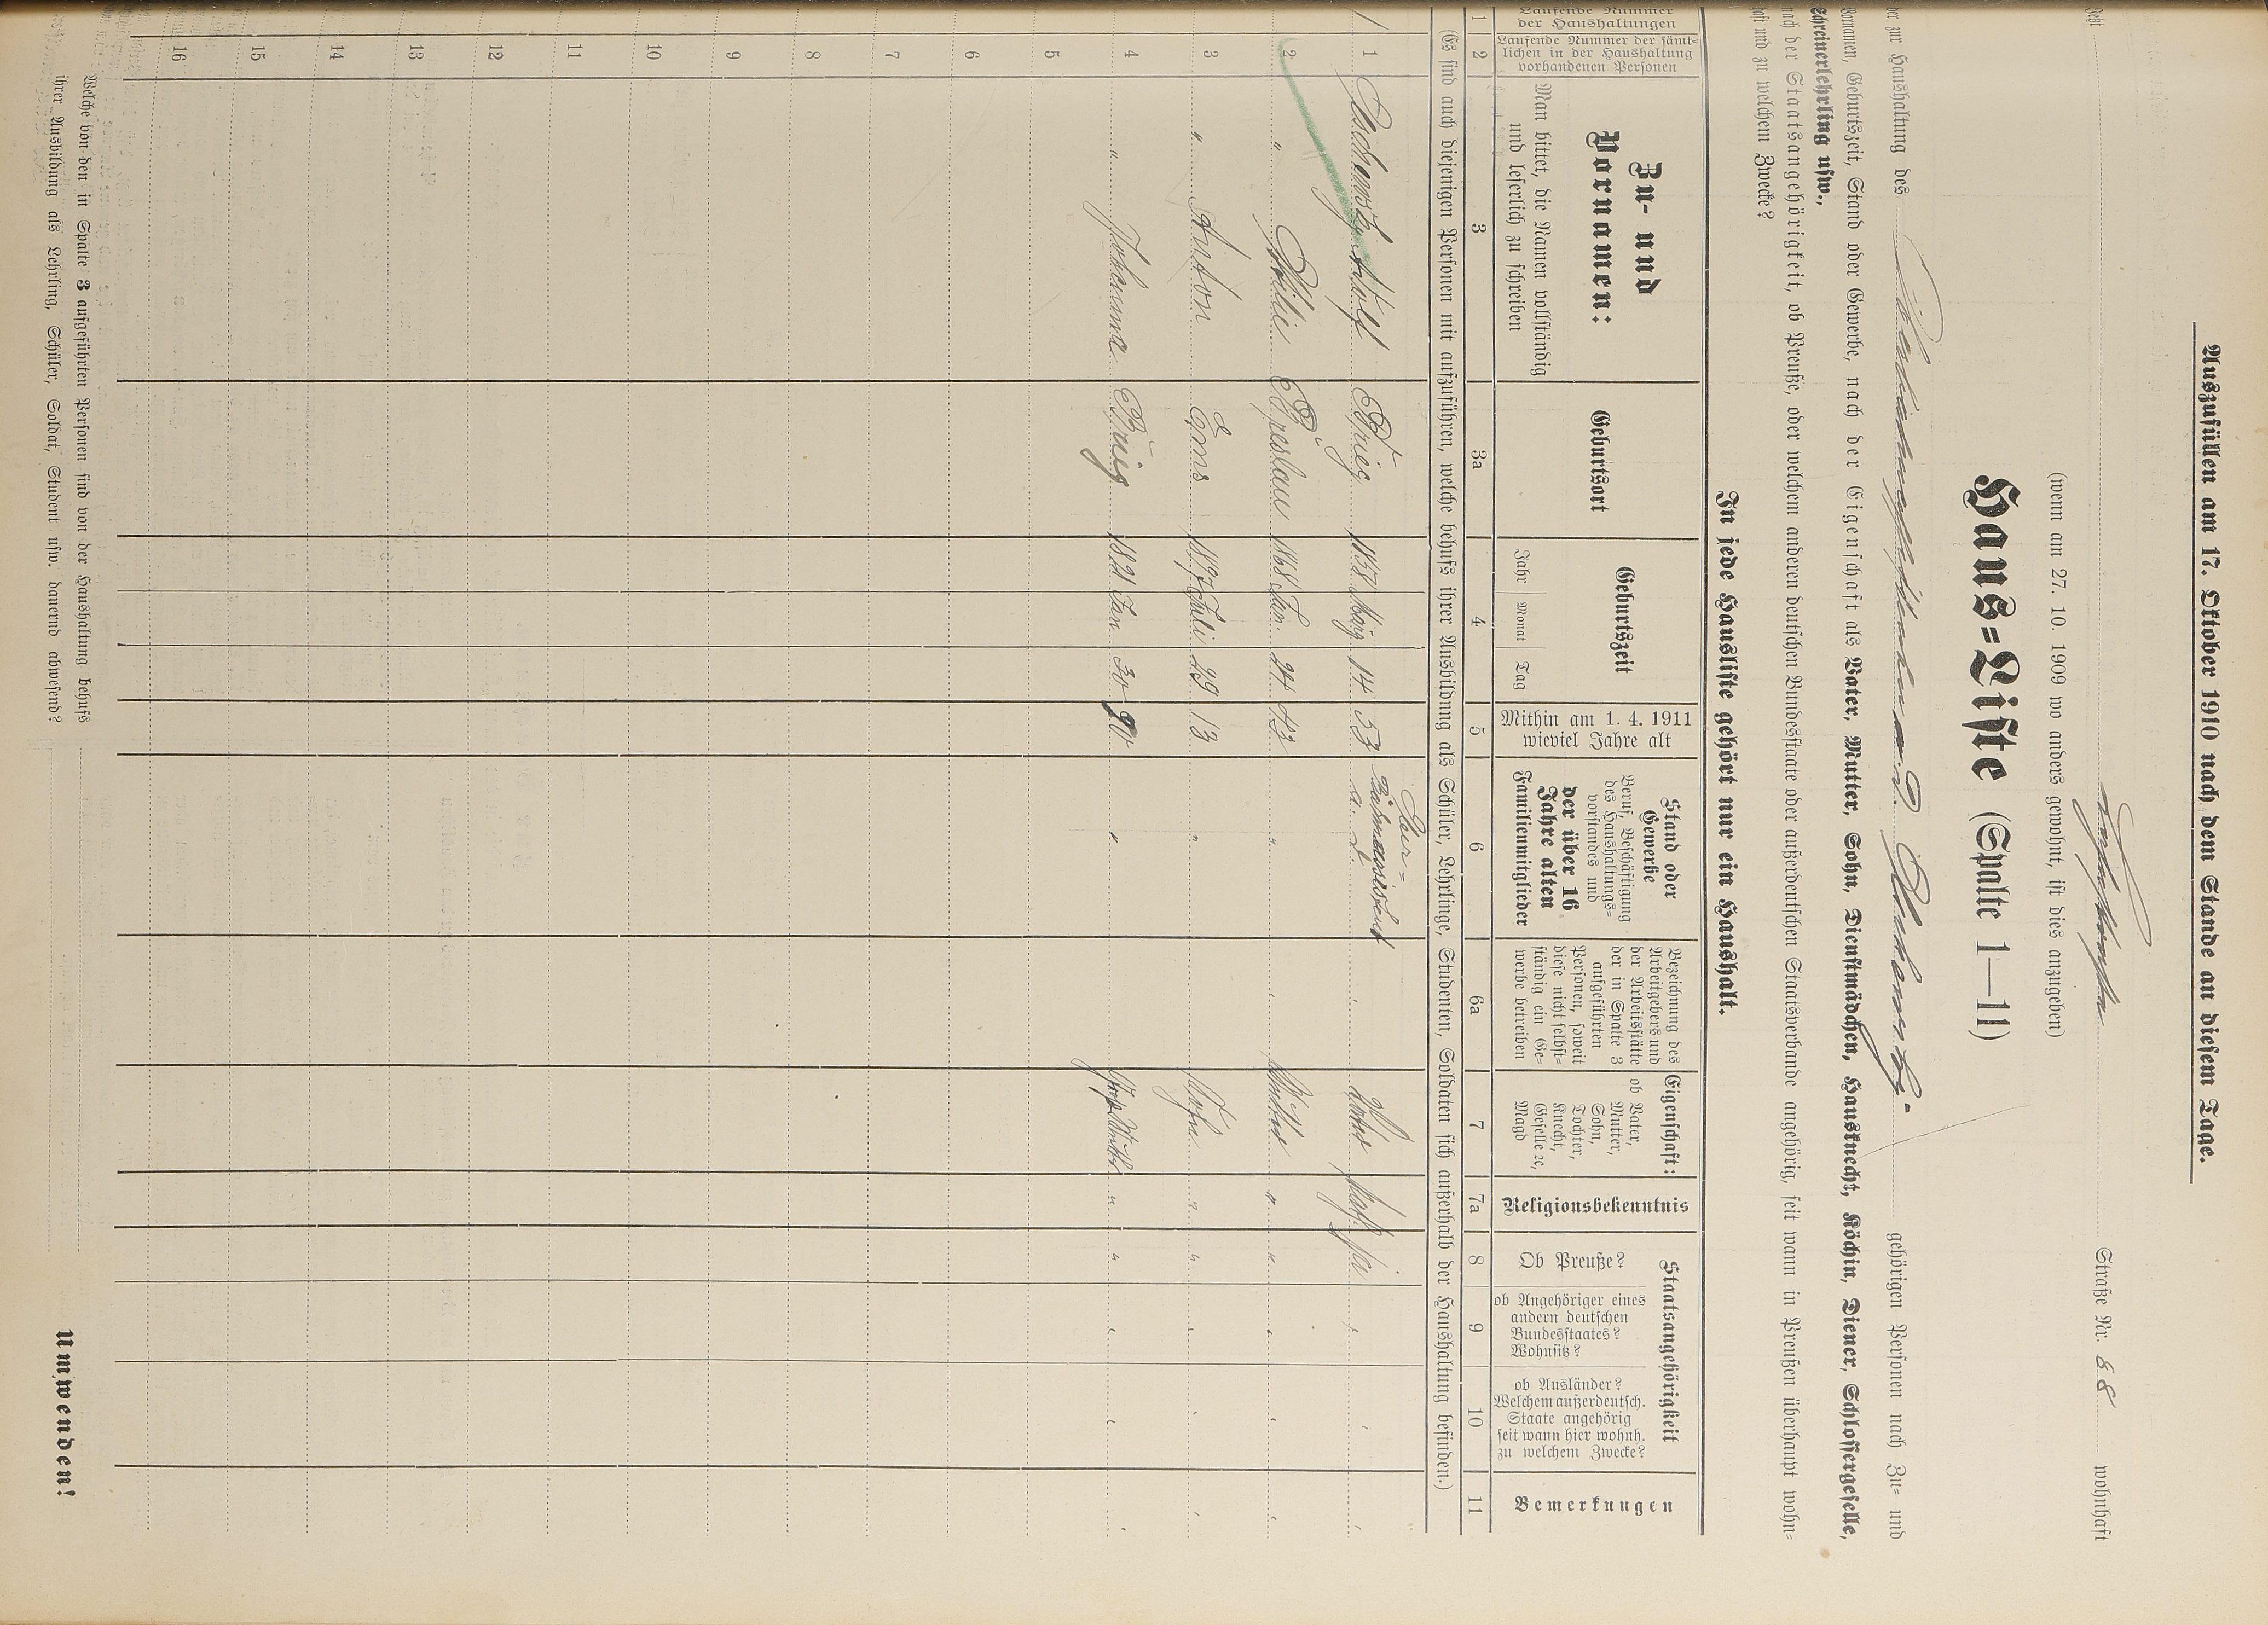 Auszufüllen am 17. Oktober 1910 nach dem Stande an diesem Tage.
Jetzt Straße Nr. 88 wohnhaft
(wenn am 27. 10. 1909 wo anders gewohnt, ist dies anzugeben)
Haus=Liste (Spalte 1—11)
der zur Haushaltung des a. D. gehörigen Personen nach Zu= und
Vornamen, Geburtszeit, Stand oder Gewerbe, nach der Eigenschaft als Vater, Mutter, Sohn, Dienstmädchen, Hausknecht, Köchin, Diener, Schlossergeselle,
Schreinerlehrling usw.,
nach der Staatsangehörigkeit, ob Preuße, oder welchem anderen deutschen Bundesstaate oder außerdeutschen Staatsverbande angehörig, seit wann in Preußen überhaupt wohn=
haft und zu welchem Zwecke?
In jede Hausliste gehört nur ein Haushalt.
Laufende Nummer der Haushaltungen
Laufende Nummer der sämt=lichen in der Haushaltung vorhandenen Personen
Zu- und Vornamen:
Man bittet, die Namen vollständig und leserlich zu schreiben
Geburtsort
Geburtszeit
Jahr Monat Tag
Mithin am 1. 4. 1911 wieviel Jahre alt
Stand oder Gewerbe
Beruf, Beschäftigung des Haushaltungs=vorstandes und
der über 16 Jahre alten Familienmitglieder
Bezeichnung des Arbeitgebers und der Arbeitsstätte der in Spalte 3 aufgeführten Personen, soweit diese nicht selbst=ständig ein Ge=werbe betreiben
Eigenschaft:
ob Vater, Mutter, Sohn, Tochter, Knecht, Geselle ꝛc, Magd
Religionsbekenntnis
Staatsangehörigkeit
Ob Preuße?
ob Angehöriger eines andern deutschen Bundesstaates? Wohnsitz?
ob Ausländer? Welchem außerdeutsch. Staate angehörig seit wann hier wohnh. zu welchem Zwecke?
Bemerkungen
1 2 3 3a 4 5 6 6a 7 7a 8 9 10 11
(Es sind auch diejenigen Personen mit aufzuführen, welche behufs ihrer Ausbildung als Schüler, Lehrlinge, Studenten, Soldaten sich außerhalb der Haushaltung befinden.)
1 Adolf Brieg 1858 März 14 53 a. D. Vater kath. ja
2 " Breslau 1868 Jan. 24 43 " Mutter " "
3 " Anton Ems 1897 Juli 29 13 " Sohn " "
4 " Johanna Brieg 1821 Jan 30 90 " " "
5
6
7
8
9
10
11
12
13
14
15
16
Welche von den in Spalte 3 aufgeführten Personen sind von der Haushaltung behufs
ihrer Ausbildung als Lehrling, Schüler, Soldat, Student usw. dauernd abwesend?
Umwenden!